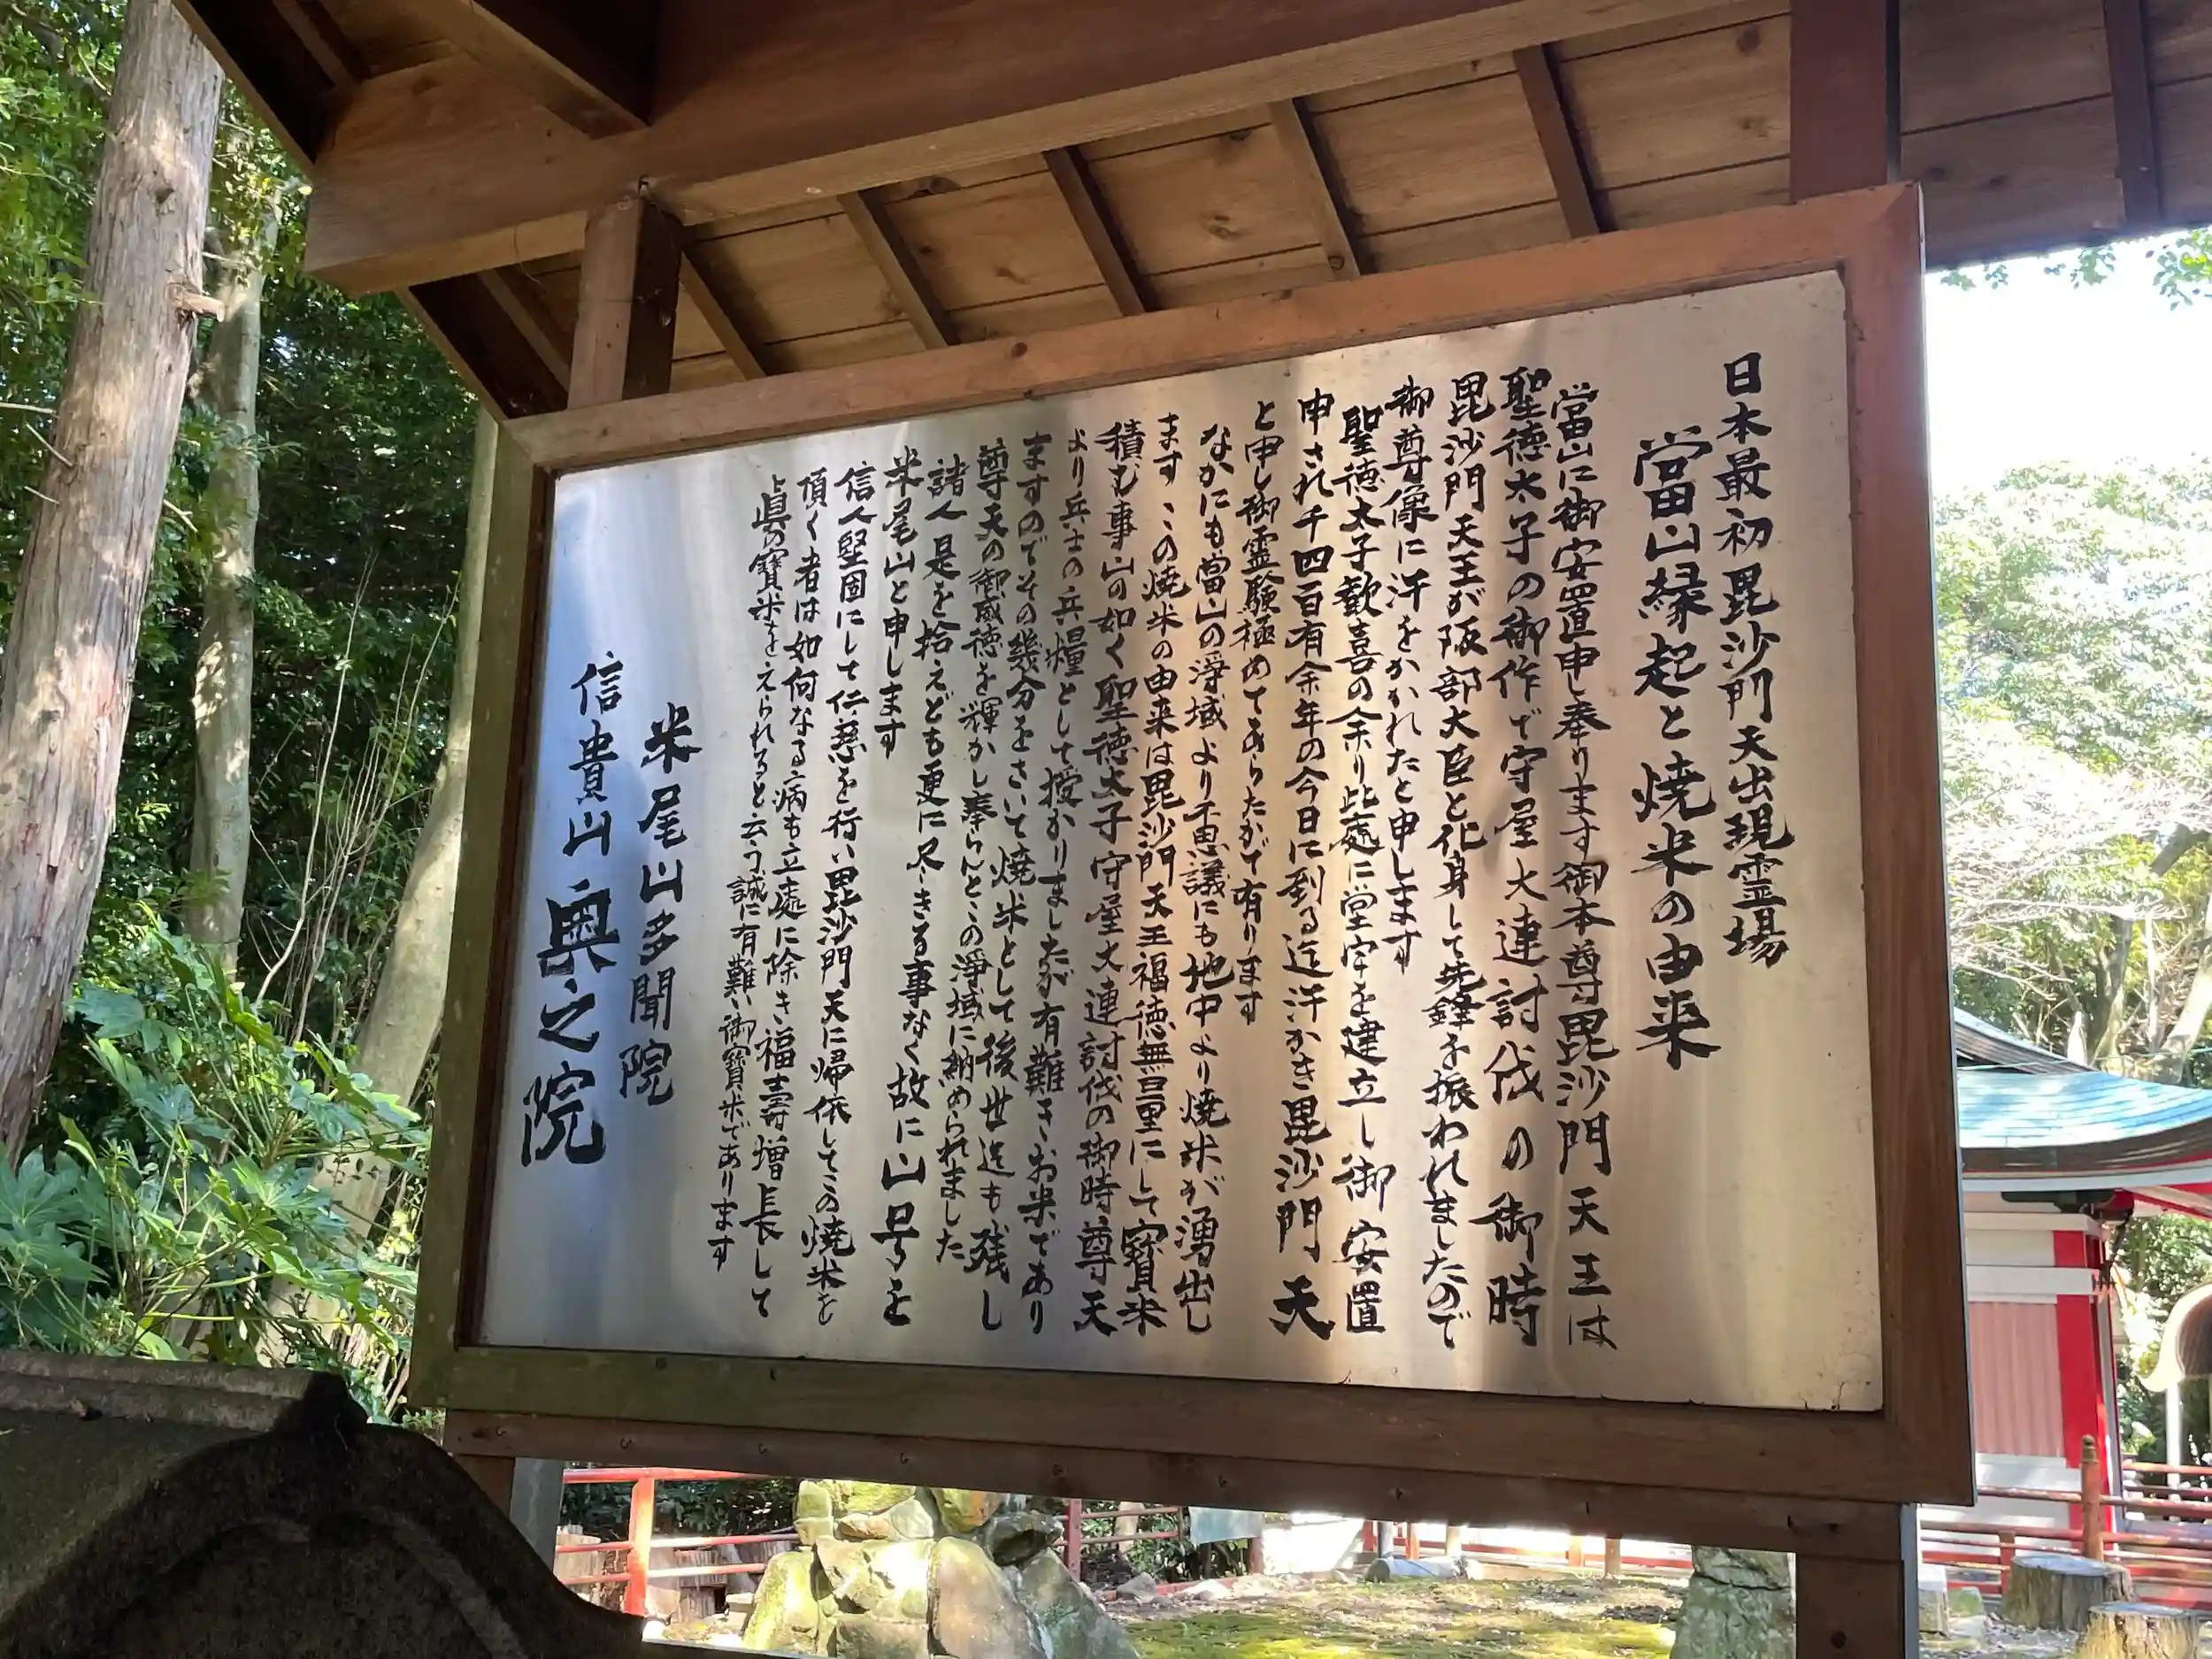 日本最初毘沙門天出現霊場
當山縁起と焼米の由来
當山に御安置申し奉ります御本尊毘沙門天王は
聖徳太子の御作で守屋大連討伐の御時
毘沙門天王が阪部大臣と化身して先鋒を振われましたので
御尊像に汗をかかれたと申します
聖徳太子歓喜の余り此處に堂宇を建立し御安置
申され千四百有余年の今日に到る迄汗かき毘沙門天
と申し御霊験極めてあらたかで有ります
なかにも當山の浄域より不思議にも地中より焼米が湧出し
ます この焼米の由来は毘沙門天王福徳無量にして寳米
積む事山の如く聖徳太子守屋大連討伐の御時尊天
より兵士の兵糧として授かりましたが有難きお米であり
ますのでその幾分をさいて焼米として後世迄も残し
尊天の御威徳を輝かし奉らんとこの浄域に納められました
諸人是を拾えども更に尽きる事なく故に山号を
米尾山と申します
信人堅固にして仁慈を行い毘沙門天に帰依してこの焼米を
頂く者は如何なる病も立處に除き福寿増長して
眞の寳米をえられると云う誠に有難い御寳米であります
米尾山多聞院
信貴山奥之院